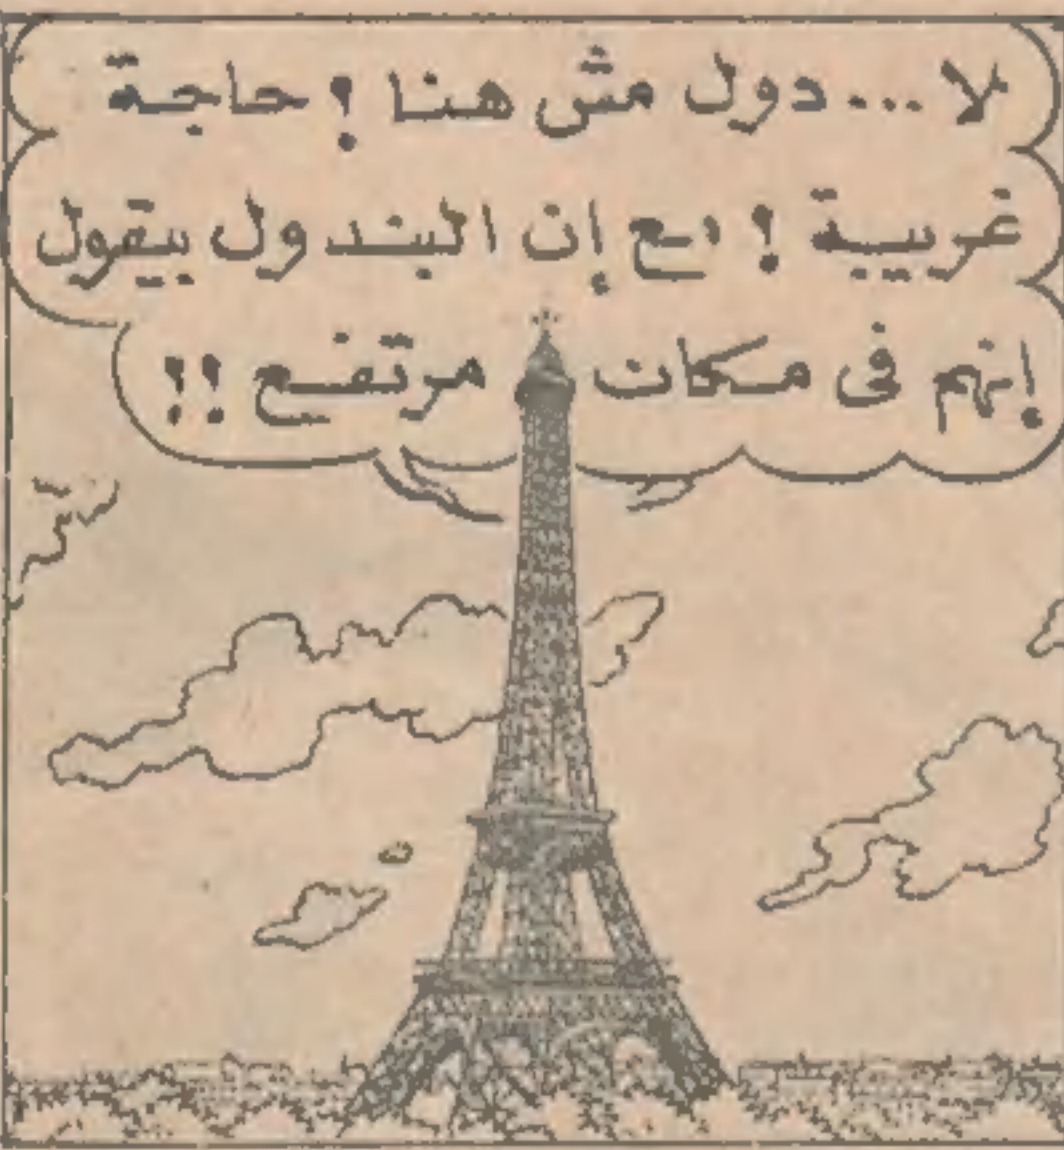 لا... دول مش هنا ! حاجة
غريبة ! مع إن البندول بيقول
إنهم فى مكان مرتفع !!